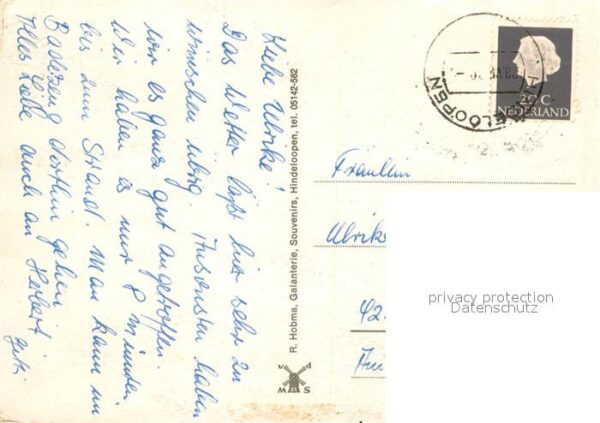 Liebe Ulrike!
Das Wetter läßt hier sehr zu
wünschen übrig. Ansonsten haben
wir es ganz gut angetroffen.
Wir haben es nur 8 Minuten
bis zum Strand. Man kann im
Badezeug dorthin gehen.
Alles Liebe auch an Herbert
R. Hobma, Galanterie, Souvenirs, Hindeloopen, tel. 05142-582
v d
M S
20 C
NEDERLAND
Fräulein
Ulrike
privacy protection
Datenschutz